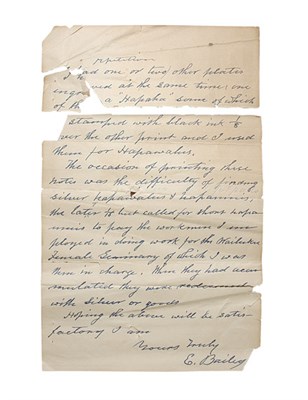 repetition.
I had one or two other plates
engraved at the same time; one
of th a "Hapaha" some of which
stamped with black ink
over the other print and I used
them for Hapawalus.
The occasion of printing these
notes was the difficulty of finding
silver hapawalus & hapaumis.
the later to but called for short hapa
umis to pay the workmen I em
ployed in doing work for the Wailuku
Female Seminary of which I was
then in charge. When they had accu
mulated they were redeemed
with silver or goods
Hoping the above will be satis
factory I am
Yours truly
E. Bailey